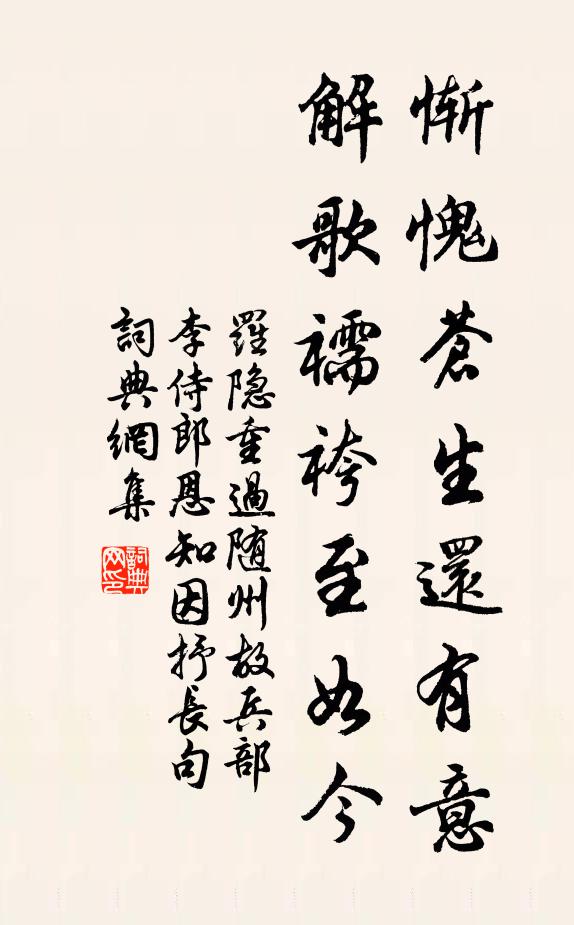 慚愧蒼生還有意
解歌襦袴至如今
羅隐重過随州故兵部
李侍郎恩知因抒長句
詞典網集
詞典网印